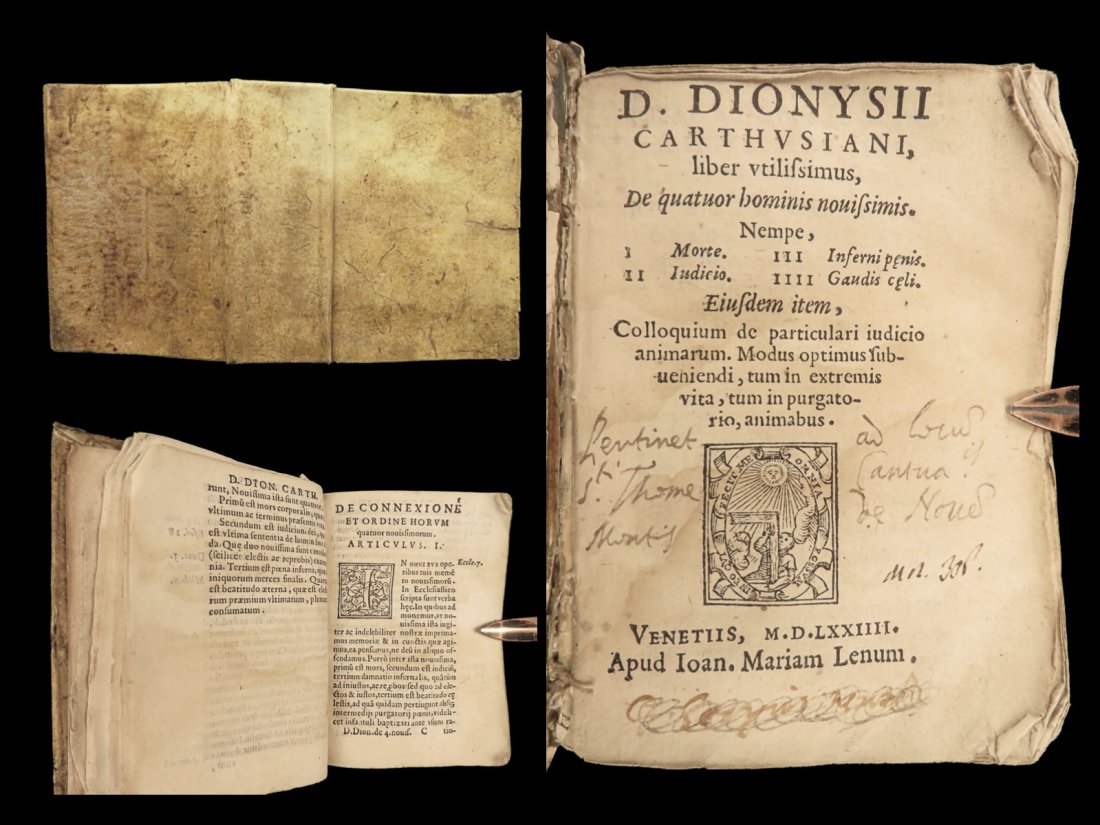 D. DION. CARTH.
runt, Nouissima ista sunt quatuor.
Primũ est mors corporalis, quæ
vltimum ac terminus præsentis vitæ
Secundum est iudicium dei, quo
est vltima sententia de homin
da. Que duo nouissima sunt
(scilicet electis ac reprobis) com
nia. Tertium est pœna inferno,
iniquorum merces finalis. Quar
est beatitudo æterna, quæ est ele
rum præmium vltimatum, plen
consumatum.
DE CONNEXIONE
ET ORDINE HORVM
quatuor nouissimorum.
ARTICVLVS. I.
I N OMNIBVS ope-
ribus tuis meme-
to nouissimorũ.
In Ecclesiastico
scripta sunt verba
hęc. In quibus ad
monemur, vt no
uissima ista iugi
ter ac indelebiliter nostræ imprima-
mus memoriæ & in cunctis quæ agi-
mus, ea pensemus, ne deũ in aliquo of-
fendamus. Porrò inter ista nouissima,
primũ est mors, secundum est iudiciũ,
tertium damnatio infernalis, quãtum
ad iniustos, ac reprobos sed quo ad ele-
ctos & iustos, tertium est beatitudo cę
lestis, ad quã quidam pertingunt absq;
intermedijs purgatorij pœnis, videli-
cet infantuli baptizati ante vsum ra-
D. Dion. de 4. nouis. C tio-
Eccle. 7.
D. DIONYSII
CARTHVSIANI,
liber vtilissimus,
De quatuor hominis nouissimis.
Nempe,
I Morte. III Inferni pęnis.
II Iudicio. IIII Gaudis cęli.
Eiusdem item,
Colloquium de particulari iudicio
animarum. Modus optimus sub-
ueniendi, tum in extremis
vita, tum in purgato-
rio, animabus.
Pertinet ad Locũ
Sti Thome
Montis de Noud
VENETIIS, M.D.LXXIIII.
Apud Ioan. Mariam Lenum.